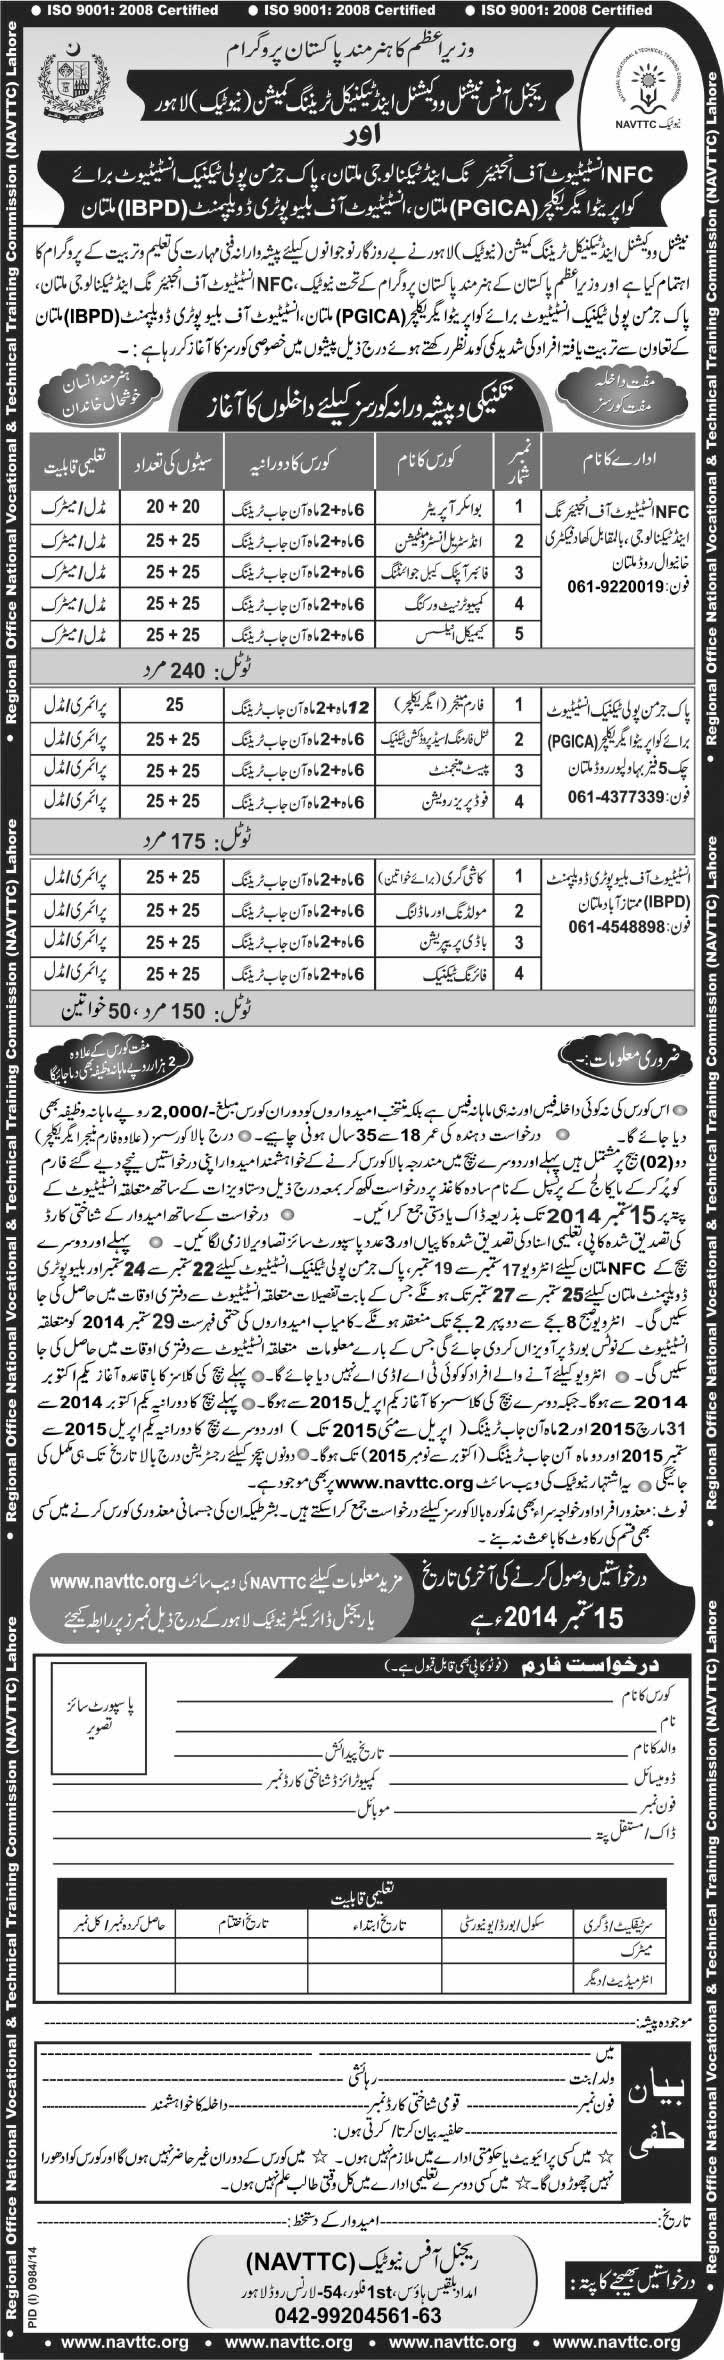 ISO 9001: 2008 Certified • ISO 9001: 2008 Certified • ISO 9001: 2008 Certified
وزیراعظم کا ہنرمند پاکستان پروگرام
نیوٹیک NAVTTC
ریجنل آفس نیشنل ووکیشنل اینڈ ٹیکنیکل ٹریننگ کمیشن (نیوٹیک) لاہور
اور
NFC انسٹیٹیوٹ آف انجنیئرنگ اینڈ ٹیکنالوجی ملتان، پاک جرمن پولی ٹیکنیک انسٹیٹیوٹ برائے
کواپریٹو ایگریکلچر (PGICA) ملتان، انسٹیٹیوٹ آف بلیو پوٹری ڈویلپمنٹ (IBPD) ملتان
نیشنل ووکیشنل اینڈ ٹیکنیکل ٹریننگ کمیشن (نیوٹیک) لاہور نے بے روزگار نوجوانوں کیلئے پیشہ وارانہ فنی مہارت کی تعلیم و تربیت کے پروگرام کا
اہتمام کیا ہے اور وزیراعظم پاکستان کے ہنرمند پاکستان پروگرام کے تحت نیوٹیک، NFC انسٹیٹیوٹ آف انجنیئرنگ اینڈ ٹیکنالوجی ملتان،
پاک جرمن پولی ٹیکنیک انسٹیٹیوٹ برائے کواپریٹو ایگریکلچر (PGICA) ملتان، انسٹیٹیوٹ آف بلیو پوٹری ڈویلپمنٹ (IBPD) ملتان
کے تعاون سے تربیت یافتہ افراد کی شدید کمی کو مدنظر رکھتے ہوئے درج ذیل پیشوں میں خصوصی کورسز کا آغاز کر رہا ہے :۔
مفت داخلہ مفت کورسز
تکنیکی و پیشہ ورانہ کورسز کیلئے داخلوں کا آغاز
ہنرمند انسان خوشحال خاندان
ادارے کا نام نمبر شمار کورس کا نام کورس کا دورانیہ سیٹوں کی تعداد تعلیمی قابلیت
NFC انسٹیٹیوٹ آف انجنیئرنگ اینڈ ٹیکنالوجی، بالمقابل کھاد فیکٹری خانیوال روڈ ملتان
فون: 061-9220019
1 بوائلر آپریٹر 6 ماہ+2 ماہ آن جاب ٹریننگ 20 + 20 مڈل/میٹرک
2 انڈسٹریل انسٹرومنٹیشن 6 ماہ+2 ماہ آن جاب ٹریننگ 25 + 25 مڈل/میٹرک
3 فائبر آپٹک کیبل جوائنٹنگ 6 ماہ+2 ماہ آن جاب ٹریننگ 25 + 25 مڈل/میٹرک
4 کمپیوٹر نیٹ ورکنگ 6 ماہ+2 ماہ آن جاب ٹریننگ 25 + 25 مڈل/میٹرک
5 کیمیکل انیلسس 6 ماہ+2 ماہ آن جاب ٹریننگ 25 + 25 مڈل/میٹرک
ٹوٹل: 240 مرد
پاک جرمن پولی ٹیکنیک انسٹیٹیوٹ برائے کواپریٹو ایگریکلچر (PGICA) چک 5 فیض بہاولپور روڈ ملتان
فون: 061-4377339
1 فارم منیجر (ایگریکلچر) 12 ماہ+2 ماہ آن جاب ٹریننگ 25 پرائمری/مڈل
2 ٹنل فارمنگ اسیڈ پروڈکشن ٹیکنیک 6 ماہ+2 ماہ آن جاب ٹریننگ 25 + 25 پرائمری/مڈل
3 پیسٹ مینجمنٹ 6 ماہ+2 ماہ آن جاب ٹریننگ 25 + 25 پرائمری/مڈل
4 فوڈ پریزرویشن 6 ماہ+2 ماہ آن جاب ٹریننگ 25 + 25 پرائمری/مڈل
ٹوٹل: 175 مرد
انسٹیٹیوٹ آف بلیو پوٹری ڈویلپمنٹ (IBPD) ممتاز آباد ملتان
فون: 061-4548898
1 کاشی گری (برائے خواتین) 6 ماہ+2 ماہ آن جاب ٹریننگ 25 + 25 پرائمری/مڈل
2 مولڈنگ اور ماڈلنگ 6 ماہ+2 ماہ آن جاب ٹریننگ 25 + 25 پرائمری/مڈل
3 باڈی پریپریشن 6 ماہ+2 ماہ آن جاب ٹریننگ 25 + 25 پرائمری/مڈل
4 فائرنگ ٹیکنیک 6 ماہ+2 ماہ آن جاب ٹریننگ 25 + 25 پرائمری/مڈل
ٹوٹل: 150 مرد، 50 خواتین
ضروری معلومات:۔
مفت کورس کے علاوہ 2 ہزار روپے ماہانہ وظیفہ بھی دیا جائیگا
اس کورس کی نہ کوئی داخلہ فیس اور نہ ہی ماہانہ فیس ہے بلکہ منتخب امیدواروں کو دوران کورس مبلغ -/2,000 روپے ماہانہ وظیفہ بھی
دیا جائے گا۔ درخواست دہندہ کی عمر 18 سے 35 سال ہونی چاہیے۔ درج بالا کورسز (علاوہ فارم منیجر ایگریکلچر)
دو (02) بیچ پر مشتمل ہیں پہلے اور دوسرے بیچ میں مندرجہ بالا کورس کرنے کے خواہشمند امیدوار اپنی درخواستیں نیچے دیے گئے فارم
کو پُر کر کے یا کالج کے پرنسپل کے نام سادہ کاغذ پر درخواست لکھ کر بمعہ درج ذیل دستاویزات کے ساتھ متعلقہ انسٹیٹیوٹ کے
پتہ پر 15 ستمبر 2014 تک بذریعہ ڈاک یا دستی جمع کرائیں۔ درخواست کے ساتھ امیدوار کے شناختی کارڈ
کی تصدیق شدہ کاپی، تعلیمی اسناد کی تصدیق شدہ کاپیاں اور 3 عدد پاسپورٹ سائز تصاویر لازمی لگائیں۔ پہلے اور دوسرے
بیچ کے NFC ملتان کیلئے انٹرویو 17 ستمبر سے 19 ستمبر، پاک جرمن پولی ٹیکنیک انسٹیٹیوٹ کیلئے 22 ستمبر سے 24 ستمبر اور بلیو پوٹری
ڈویلپمنٹ ملتان کیلئے 25 ستمبر سے 27 ستمبر تک ہونگے جس کے بابت تفصیلات متعلقہ انسٹیٹیوٹ سے دفتری اوقات میں حاصل کی جا
سکیں گی۔ انٹرویو صبح 8 بجے سے دوپہر 2 بجے تک منعقد ہونگے۔ کامیاب امیدواروں کی حتمی فہرست 29 ستمبر 2014 کو متعلقہ
انسٹیٹیوٹ کے نوٹس بورڈ پر آویزاں کر دی جائے گی جس کے بارے معلومات متعلقہ انسٹیٹیوٹ سے دفتری اوقات میں حاصل کی جا
سکیں گی۔ انٹرویو کیلئے آنے والے افراد کو کوئی ٹی اے/ڈی اے نہیں دیا جائے گا۔ پہلے بیچ کی کلاسز کا باقاعدہ آغاز یکم اکتوبر
2014 سے ہوگا۔ جبکہ دوسرے بیچ کی کلاسز کا آغاز یکم اپریل 2015 سے ہوگا۔ پہلے بیچ کا دورانیہ یکم اکتوبر 2014 سے
31 مارچ 2015 اور 2 ماہ آن جاب ٹریننگ (اپریل سے مئی 2015 تک) اور دوسرے بیچ کا دورانیہ یکم اپریل 2015 سے
ستمبر 2015 اور دو ماہ آن جاب ٹریننگ (اکتوبر سے نومبر 2015) تک ہوگا۔ دونوں بیچز کیلئے رجسٹریشن درج بالا تاریخ تک ہی مکمل کی
جائیگی یہ اشتہار نیوٹیک کی ویب سائٹ www.navttc.org پر بھی موجود ہے۔
نوٹ: معذور افراد اور خواجہ سراء بھی مذکورہ بالا کورسز کیلئے درخواست جمع کرا سکتے ہیں۔ بشرطیکہ ان کی جسمانی معذوری کورس کرنے میں کسی
بھی قسم کی رکاوٹ کا باعث نہ بنے۔
درخواستیں وصول کرنے کی آخری تاریخ
15 ستمبر 2014ء ہے
مزید معلومات کیلئے NAVTTC کی ویب سائٹ www.navttc.org
یا ریجنل ڈائریکٹر نیوٹیک لاہور کے درج ذیل نمبرز پر رابطہ کیجئے
درخواست فارم (فوٹو کاپی بھی قابل قبول ہے۔)
پاسپورٹ سائز تصویر
کورس کا نام
نام
والد کا نام تاریخ پیدائش
ڈومیسائل کمپیوٹرائزڈ شناختی کارڈ نمبر
فون نمبر موبائل
ڈاک/مستقل پتہ
تعلیمی قابلیت
سرٹیفکیٹ/ڈگری سکول/بورڈ/یونیورسٹی تاریخ ابتداء تاریخ اختتام حاصل کردہ نمبر/کل نمبر
میٹرک
انٹرمیڈیٹ/دیگر
موجودہ پیشہ:
بیان حلفی
میں
ولد/بنت رہائشی
فون نمبر قومی شناختی کارڈ نمبر داخلہ کا خواہشمند
حلفیہ بیان کرتا/کرتی ہوں:
☆ میں کسی پرائیویٹ یا حکومتی ادارے میں ملازم نہیں ہوں۔ ☆ میں کورس کے دوران غیر حاضر نہیں ہوں گا اور کورس کو ادھورا
نہیں چھوڑوں گا۔ ☆ میں کسی دوسرے تعلیمی ادارے میں کل وقتی طالب علم نہیں ہوں۔
تاریخ: امیدوار کے دستخط:
درخواستیں بھیجنے کا پتہ:
ریجنل آفس نیوٹیک (NAVTTC)
امداد بلقیس ہاؤس، 1st فلور، 54-لارنس روڈ لاہور
042-99204561-63
PID (I) 0984/14
www.navttc.org • www.navttc.org • www.navttc.org • www.navttc.org
Regional Office National Vocational & Technical Training Commission (NAVTTC) Lahore